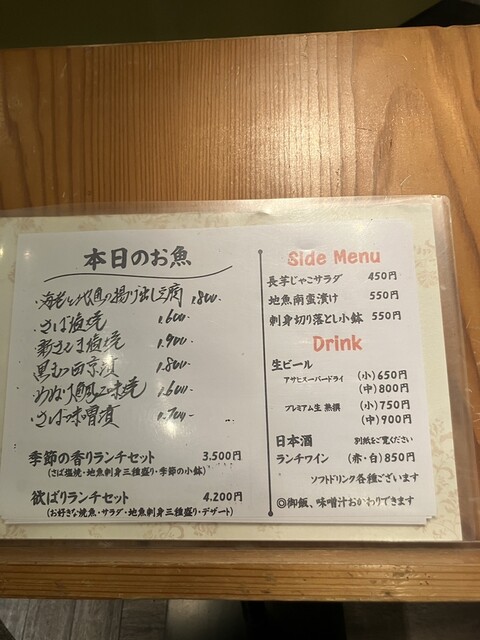 本日のお魚
・海老と地魚の揚げ出し豆腐 1.800-
・さば塩焼 1.600-
・新さんま塩焼 1.900-
・黒むつ西京漬 1.800-
七味焼 1.600-
・さばの味噌漬 1.700-
季節の香りランチセット 3.500円
(さば塩焼・地魚刺身三種盛り・季節の小鉢)
欲ばりランチセット 4.200円
(お好きな焼魚・サラダ・地魚刺身三種盛り・デザート)
Side Menu
長芋じゃこサラダ 450円
地魚南蛮漬け 550円
刺身切り落とし小鉢 550円
Drink
生ビール
アサヒスーパードライ (小)650円
(中)800円
プレミアム生 熟撰 (小)750円
(中)900円
日本酒 別紙をご覧ください
ランチワイン (赤・白)850円
ソフトドリンク各種ございます
◎御飯、味噌汁おかわりできます